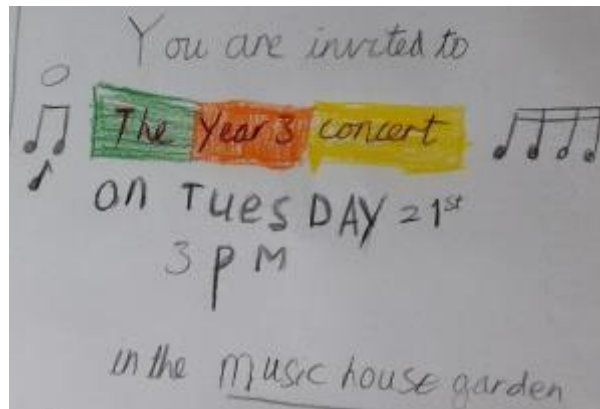 You are invited to
The Year 3 concert
on TuesDAY 21st
3 pM
in the music house garden